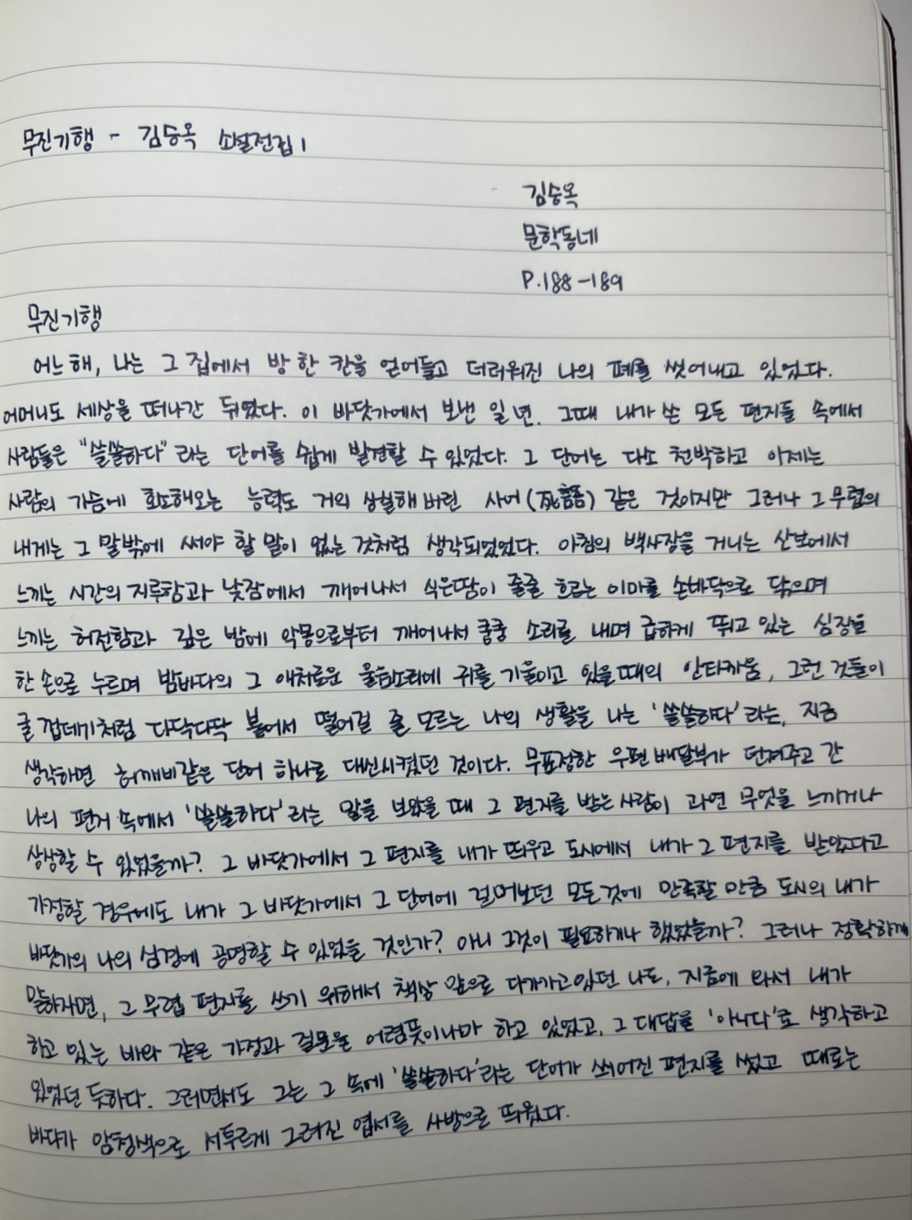 무진기행 - 김승옥 소설전집 1
김승옥
문학동네
P.188-189
무진기행
어느 해, 나는 그 집에서 방 한 칸을 얻어들고 더러워진 나의 폐를 씻어내고 있었다.
어머니도 세상을 떠나간 뒤였다. 이 바닷가에서 보낸 일 년. 그때 내가 쓴 모든 편지들 속에서
사람들은 "쓸쓸하다"라는 단어를 쉽게 발견할 수 있었다. 그 단어는 다소 천박하고 이제는
사람의 가슴에 호소해오는 능력도 거의 상실해버린 사어(死語) 같은 것이지만 그러나 그 무렵의
내게는 그 말밖에 써야 할 말이 없는 것처럼 생각되었었다. 아침의 백사장을 거니는 산보에서
느끼는 시간의 지루함과 낮잠에서 깨어나서 식은땀이 줄줄 흐르는 이마를 손바닥으로 닦으며
느끼는 허전함과 깊은 밤에 악몽으로부터 깨어나서 쿵쿵 소리를 내며 급하게 뛰고 있는 심장을
한 손으로 누르며 밤바다의 그 애처로운 울음소리에 귀를 기울이고 있을 때의 안타까움, 그런 것들이
굴 껍데기처럼 다닥다닥 붙어서 떨어질 줄 모르는 나의 생활을 나는 '쓸쓸하다'라는, 지금
생각하면 허깨비같은 단어 하나로 대신시켰던 것이다. 무표정한 우편배달부가 던져주고 간
나의 편지 속에서 '쓸쓸하다'라는 말을 보았을 때 그 편지를 받는 사람이 과연 무엇을 느끼거나
상상할 수 있었을까? 그 바닷가에서 그 편지를 내가 띄우고 도시에서 내가 그 편지를 받았다고
가정할 경우에도 내가 그 바닷가에서 그 단어에 걸어보던 모든 것에 만족할 만큼 도시의 내가
바닷가의 나의 심경에 공명할 수 있었을 것인가? 아니 그것이 필요하기나 했었을까? 그러나 정확하게
말하자면, 그 무렵 편지를 쓰기 위해서 책상 앞으로 다가가고 있던 나도, 지금에 와서 내가
하고 있는 바와 같은 가정과 질문을 어렴풋이나마 하고 있었고, 그 대답을 '아니다'로 생각하고
있었던 듯하다. 그러면서도 그는 그 속에 '쓸쓸하다'라는 단어가 씌어진 편지를 썼고 때로는
바다가 암청색으로 서투르게 그려진 엽서를 사방으로 띄웠다.